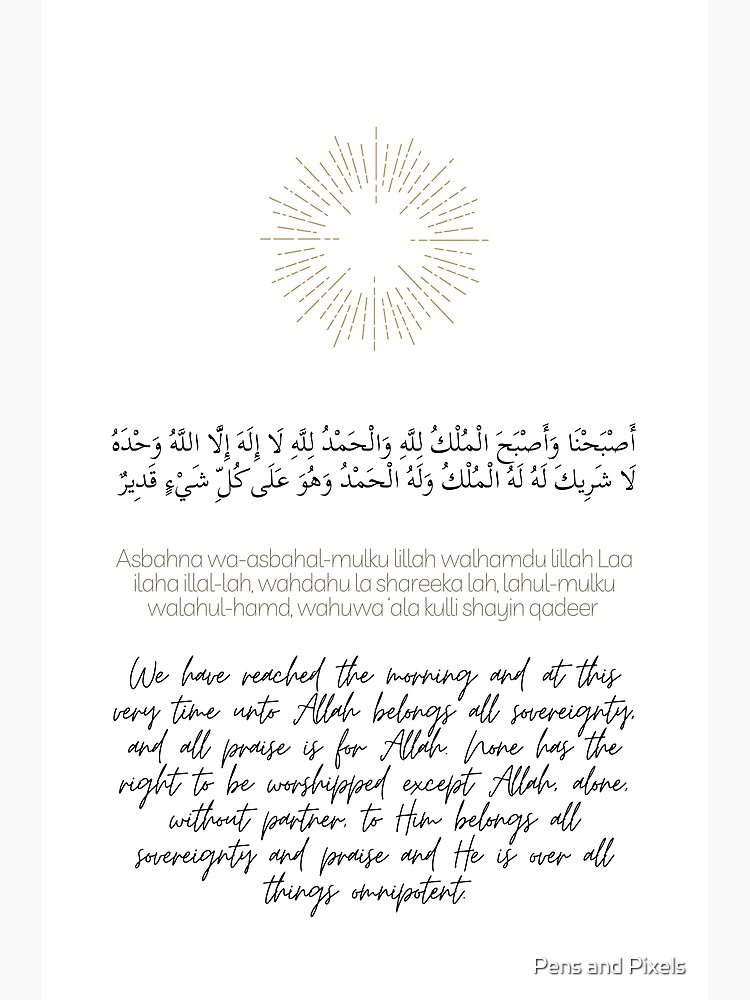 أَصْبَحْنَا وَأَصْبَحَ الْمُلْكُ لِلَّهِ وَالْحَمْدُ لِلَّهِ لَا إِلَهَ إِلَّا اللَّهُ وَحْدَهُ
لَا شَرِيكَ لَهُ لَهُ الْمُلْكُ وَلَهُ الْحَمْدُ وَهُوَ عَلَى كُلِّ شَيْءٍ قَدِيرٌ
Asbahna wa-asbahal-mulku lillah walhamdu lillah Laa
ilaha illal-lah, wahdahu la shareeka lah, lahul-mulku
walahul-hamd, wahuwa ‘ala kulli shayin qadeer
We have reached the morning and at this
very time unto Allah belongs all sovereignty,
and all praise is for Allah. None has the
right to be worshipped except Allah, alone,
without partner, to Him belongs all
sovereignty and praise and He is over all
things omnipotent.
Pens and Pixels